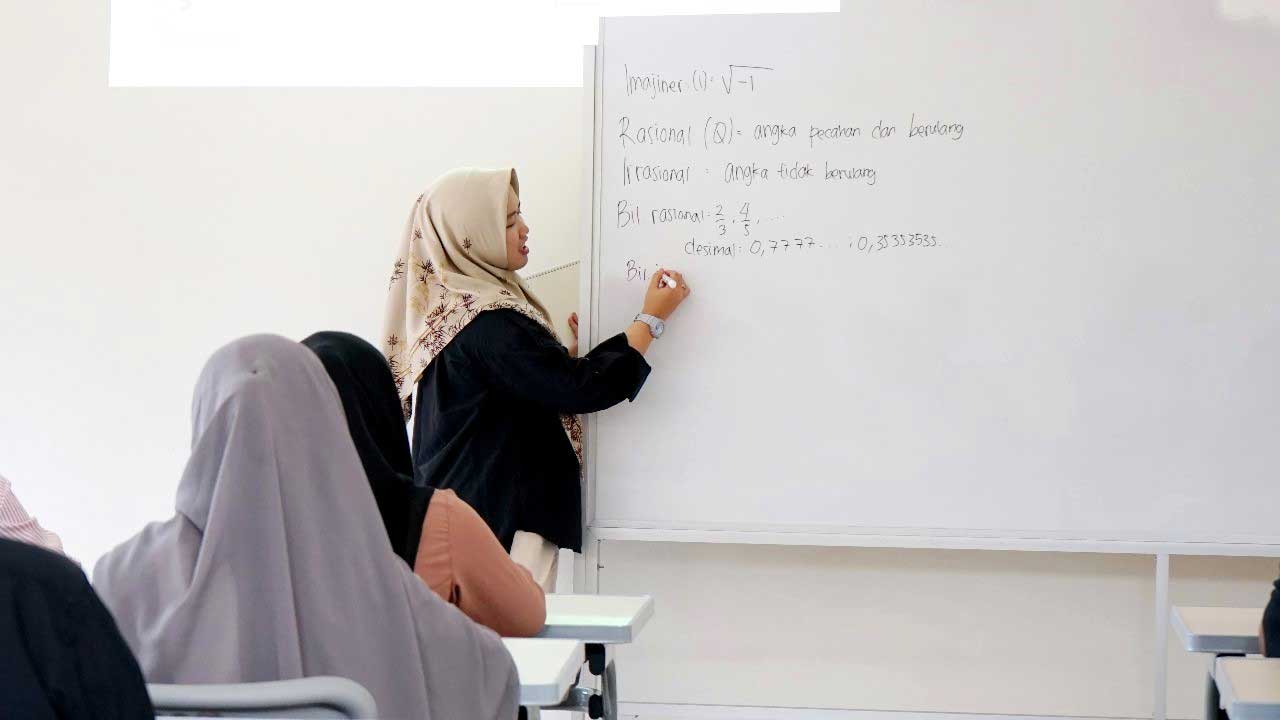 Imajiner (i) = √-1
Rasional (Q) = angka pecahan dan berulang
Irrasional = angka tidak berulang
Bil rasional = 2/3, 4/5, ....
desimal = 0,7777....; 0,35353535...
Bil